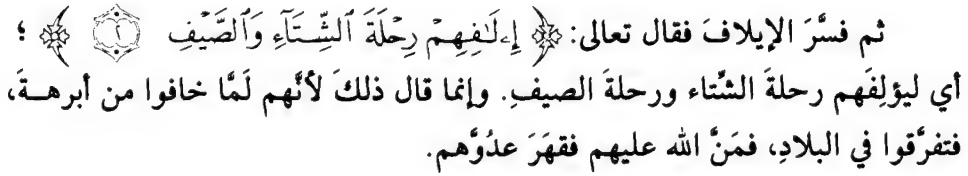 ثم فسَّرَ الإيلافَ فقال تعالى: ﴿ إِۦلَٰفِهِمْ رِحْلَةَ ٱلشِّتَآءِ وَٱلصَّيْفِ ٢ ﴾ ؛
أي ليؤلِفَهم رحلةَ الشِّتاء ورحلةَ الصيفِ. وإنما قال ذلكَ لأنَّهم لَمَّا خافوا من أبرهـةَ،
فتفرَّقوا في البلادِ، فمَنَّ الله عليهم فقهَرَ عدُوَّهم.